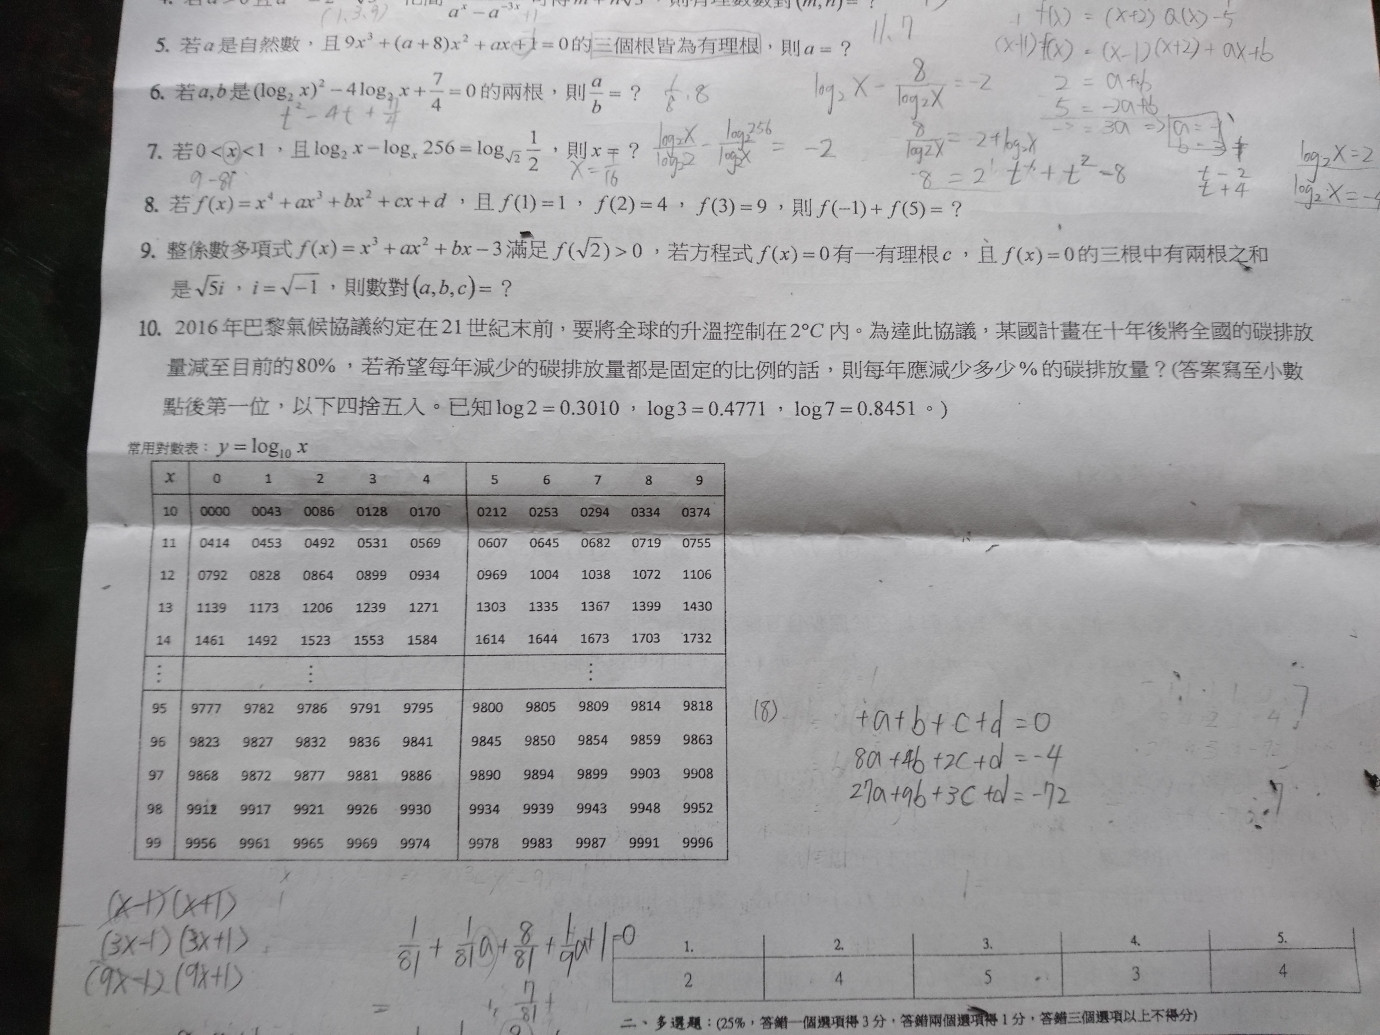 5. 若a是自然數，且9x³+(a+8)x²+ax+1=0的三個根皆為有理根，則a=？
11.7
f(x) = (x+2) Q(x) -5
6. 若a,b是(log₂x)²-4log₂x+7/4=0的兩根，則a/b=？
1/8 . 8
log₂X - 8/log₂X = -2
2 = a+b
5 = -2a+b
t² - 4t +
7. 若0<x<1，且log₂x-logₓ256=log_√2 1/2，則x=？
X = 1/16
log₂X/log₂2 - log₂256/log₂X = -2
8/log₂X = -2+log₂X
log₂X=2
log₂X=-4
t - 2
t + 4
8. 若f(x)=x⁴+ax³+bx²+cx+d，且f(1)=1，f(2)=4，f(3)=9，則f(-1)+f(5)=？
9. 整係數多項式f(x)=x³+ax²+bx-3滿足f(√2)>0，若方程式f(x)=0有一有理根c，且f(x)=0的三根中有兩根之和
是√5i，i=√-1，則數對(a,b,c)=？
10. 2016年巴黎氣候協議約定在21世紀末前，要將全球的升溫控制在2°C內。為達此協議，某國計畫在十年後將全國的碳排放
量減至目前的80%，若希望每年減少的碳排放量都是固定的比例的話，則每年應減少多少%的碳排放量？(答案寫至小數
點後第一位，以下四捨五入。已知log2=0.3010，log3=0.4771，log7=0.8451。)
常用對數表：y=log₁₀x
x 0 1 2 3 4 5 6 7 8 9
10 0000 0043 0086 0128 0170 0212 0253 0294 0334 0374
11 0414 0453 0492 0531 0569 0607 0645 0682 0719 0755
12 0792 0828 0864 0899 0934 0969 1004 1038 1072 1106
13 1139 1173 1206 1239 1271 1303 1335 1367 1399 1430
14 1461 1492 1523 1553 1584 1614 1644 1673 1703 1732
⋮ ⋮ ⋮
95 9777 9782 9786 9791 9795 9800 9805 9809 9814 9818
96 9823 9827 9832 9836 9841 9845 9850 9854 9859 9863
97 9868 9872 9877 9881 9886 9890 9894 9899 9903 9908
98 9912 9917 9921 9926 9930 9934 9939 9943 9948 9952
99 9956 9961 9965 9969 9974 9978 9983 9987 9991 9996
(8) +a+b+c+d=0
8a+4b+2c+d=-4
27a+9b+3c+d=-72
(x-1)(x+1)
(3x-1)(3x+1)
(9x-1)(9x+1)
1/81 + 1/81a + 8/81 + 1/9a+1=0
1. 2. 3. 4. 5.
2 4 5 3 4
二、多選題：(25%，答錯一個選項得3分，答錯兩個選項得1分，答錯三個選項以上不得分)